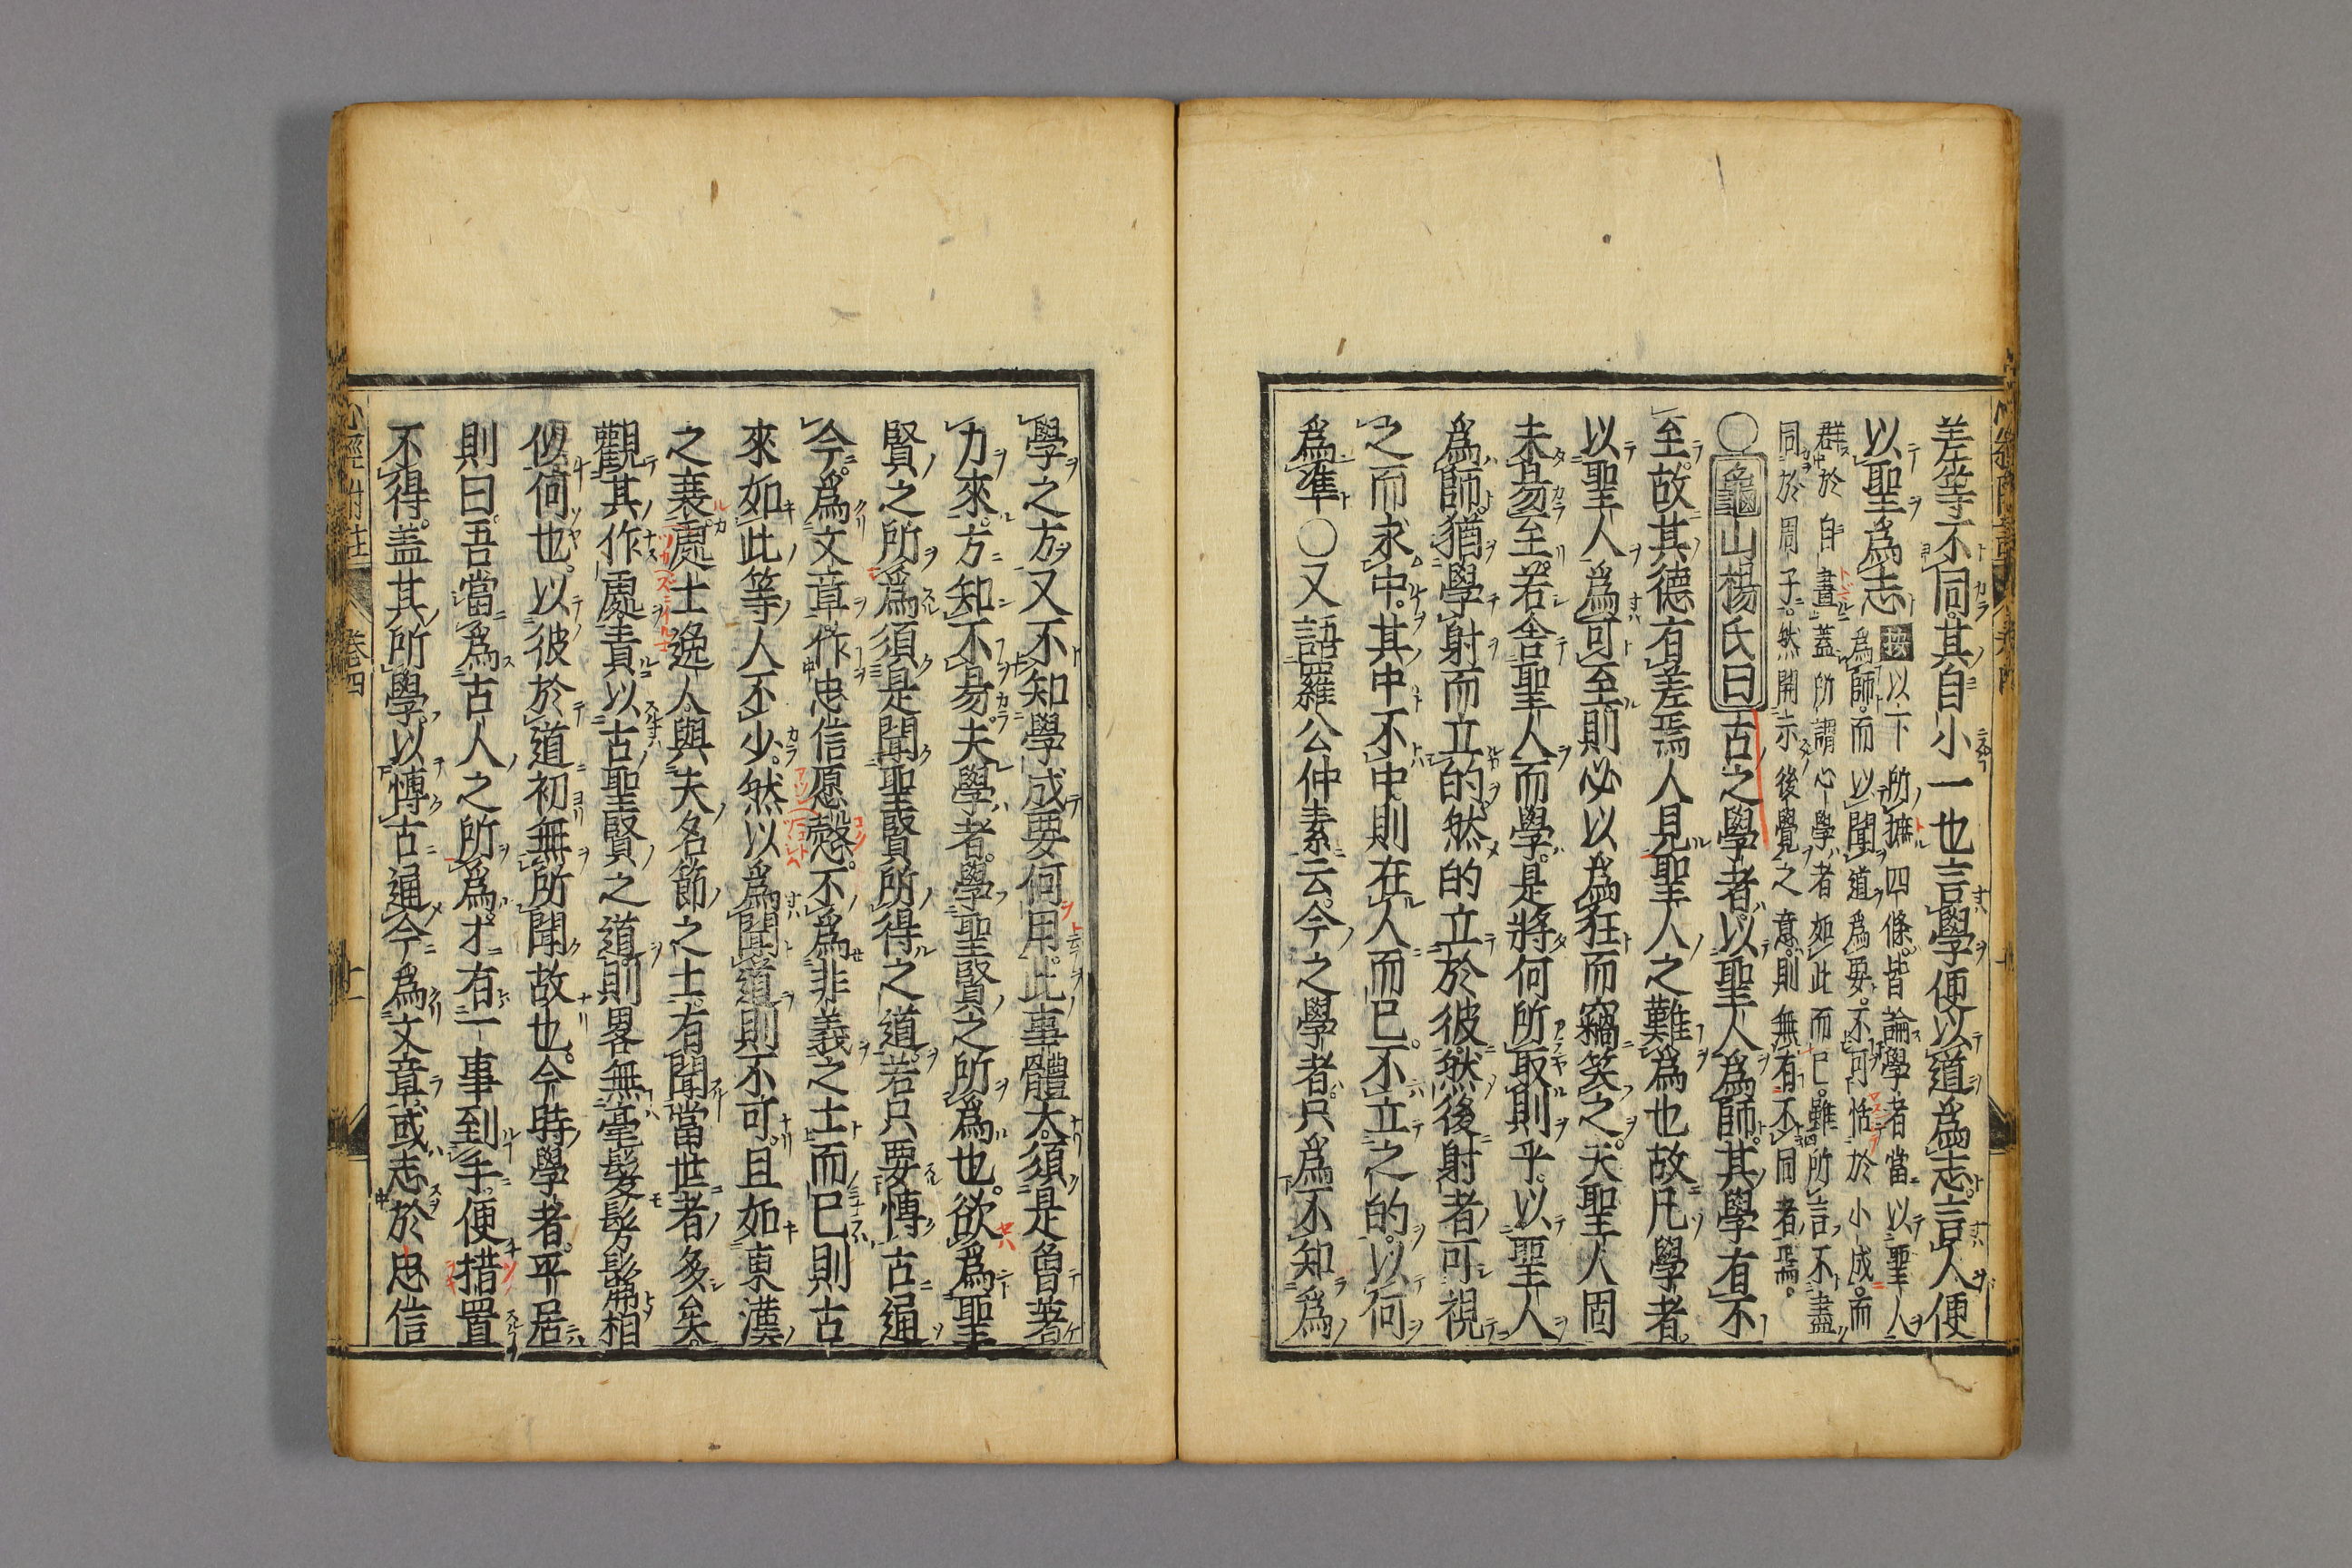 差等不同其自小一也言學便以道爲志言人便
以聖爲志按以下所摭四條皆論學者當以聖人
爲師而以聞道爲要不可恬於小成而
群於自畫蓋所謂心學者如此而已雖所言不盡
同於周子然開示後覺之意則無有不同者焉
○龜山楊氏曰古之學者以聖人爲師其學有不
至故其德有差焉人見聖人之難爲也故凡學者
以聖人爲可至則必以爲狂而竊笑之夫聖人固
未易至若舍聖人而學是將何所取則乎以聖人
爲師猶學射而立的然的立於彼然後射者可視
之而求中其中不中則在人而已不立之的以何
爲準○又語羅公仲素云今之學者只爲不知爲
學之方又不知學成要何用此事體大須是曾著
力來方知不易夫學者學聖賢之所爲也欲爲聖
賢之所爲須是聞聖賢所得之道若只要愽古通
今爲文章作忠信愿慤不爲非義之士而已則古
來如此等人不少然以爲聞道則不可且如東漢
之衰處士逸人與夫名節之士有聞當世者多矣
觀其作處責以古聖賢之道則畧無毫髮髣髴相
似何也以彼於道初無所聞故也今時學者平居
則曰吾當爲古人之所爲才有一事到手便措置
不得蓋其所學以愽古通今爲文章或志於忠信
心經附註 卷四 十一